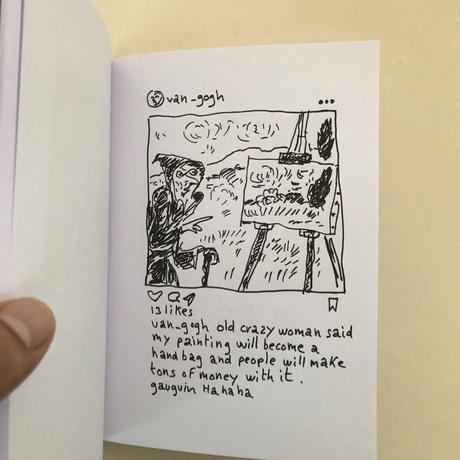 van_gogh
13 likes
van_gogh old crazy woman said
my painting will become a
handbag and people will make
tons of money with it.
gauguin Hahaha